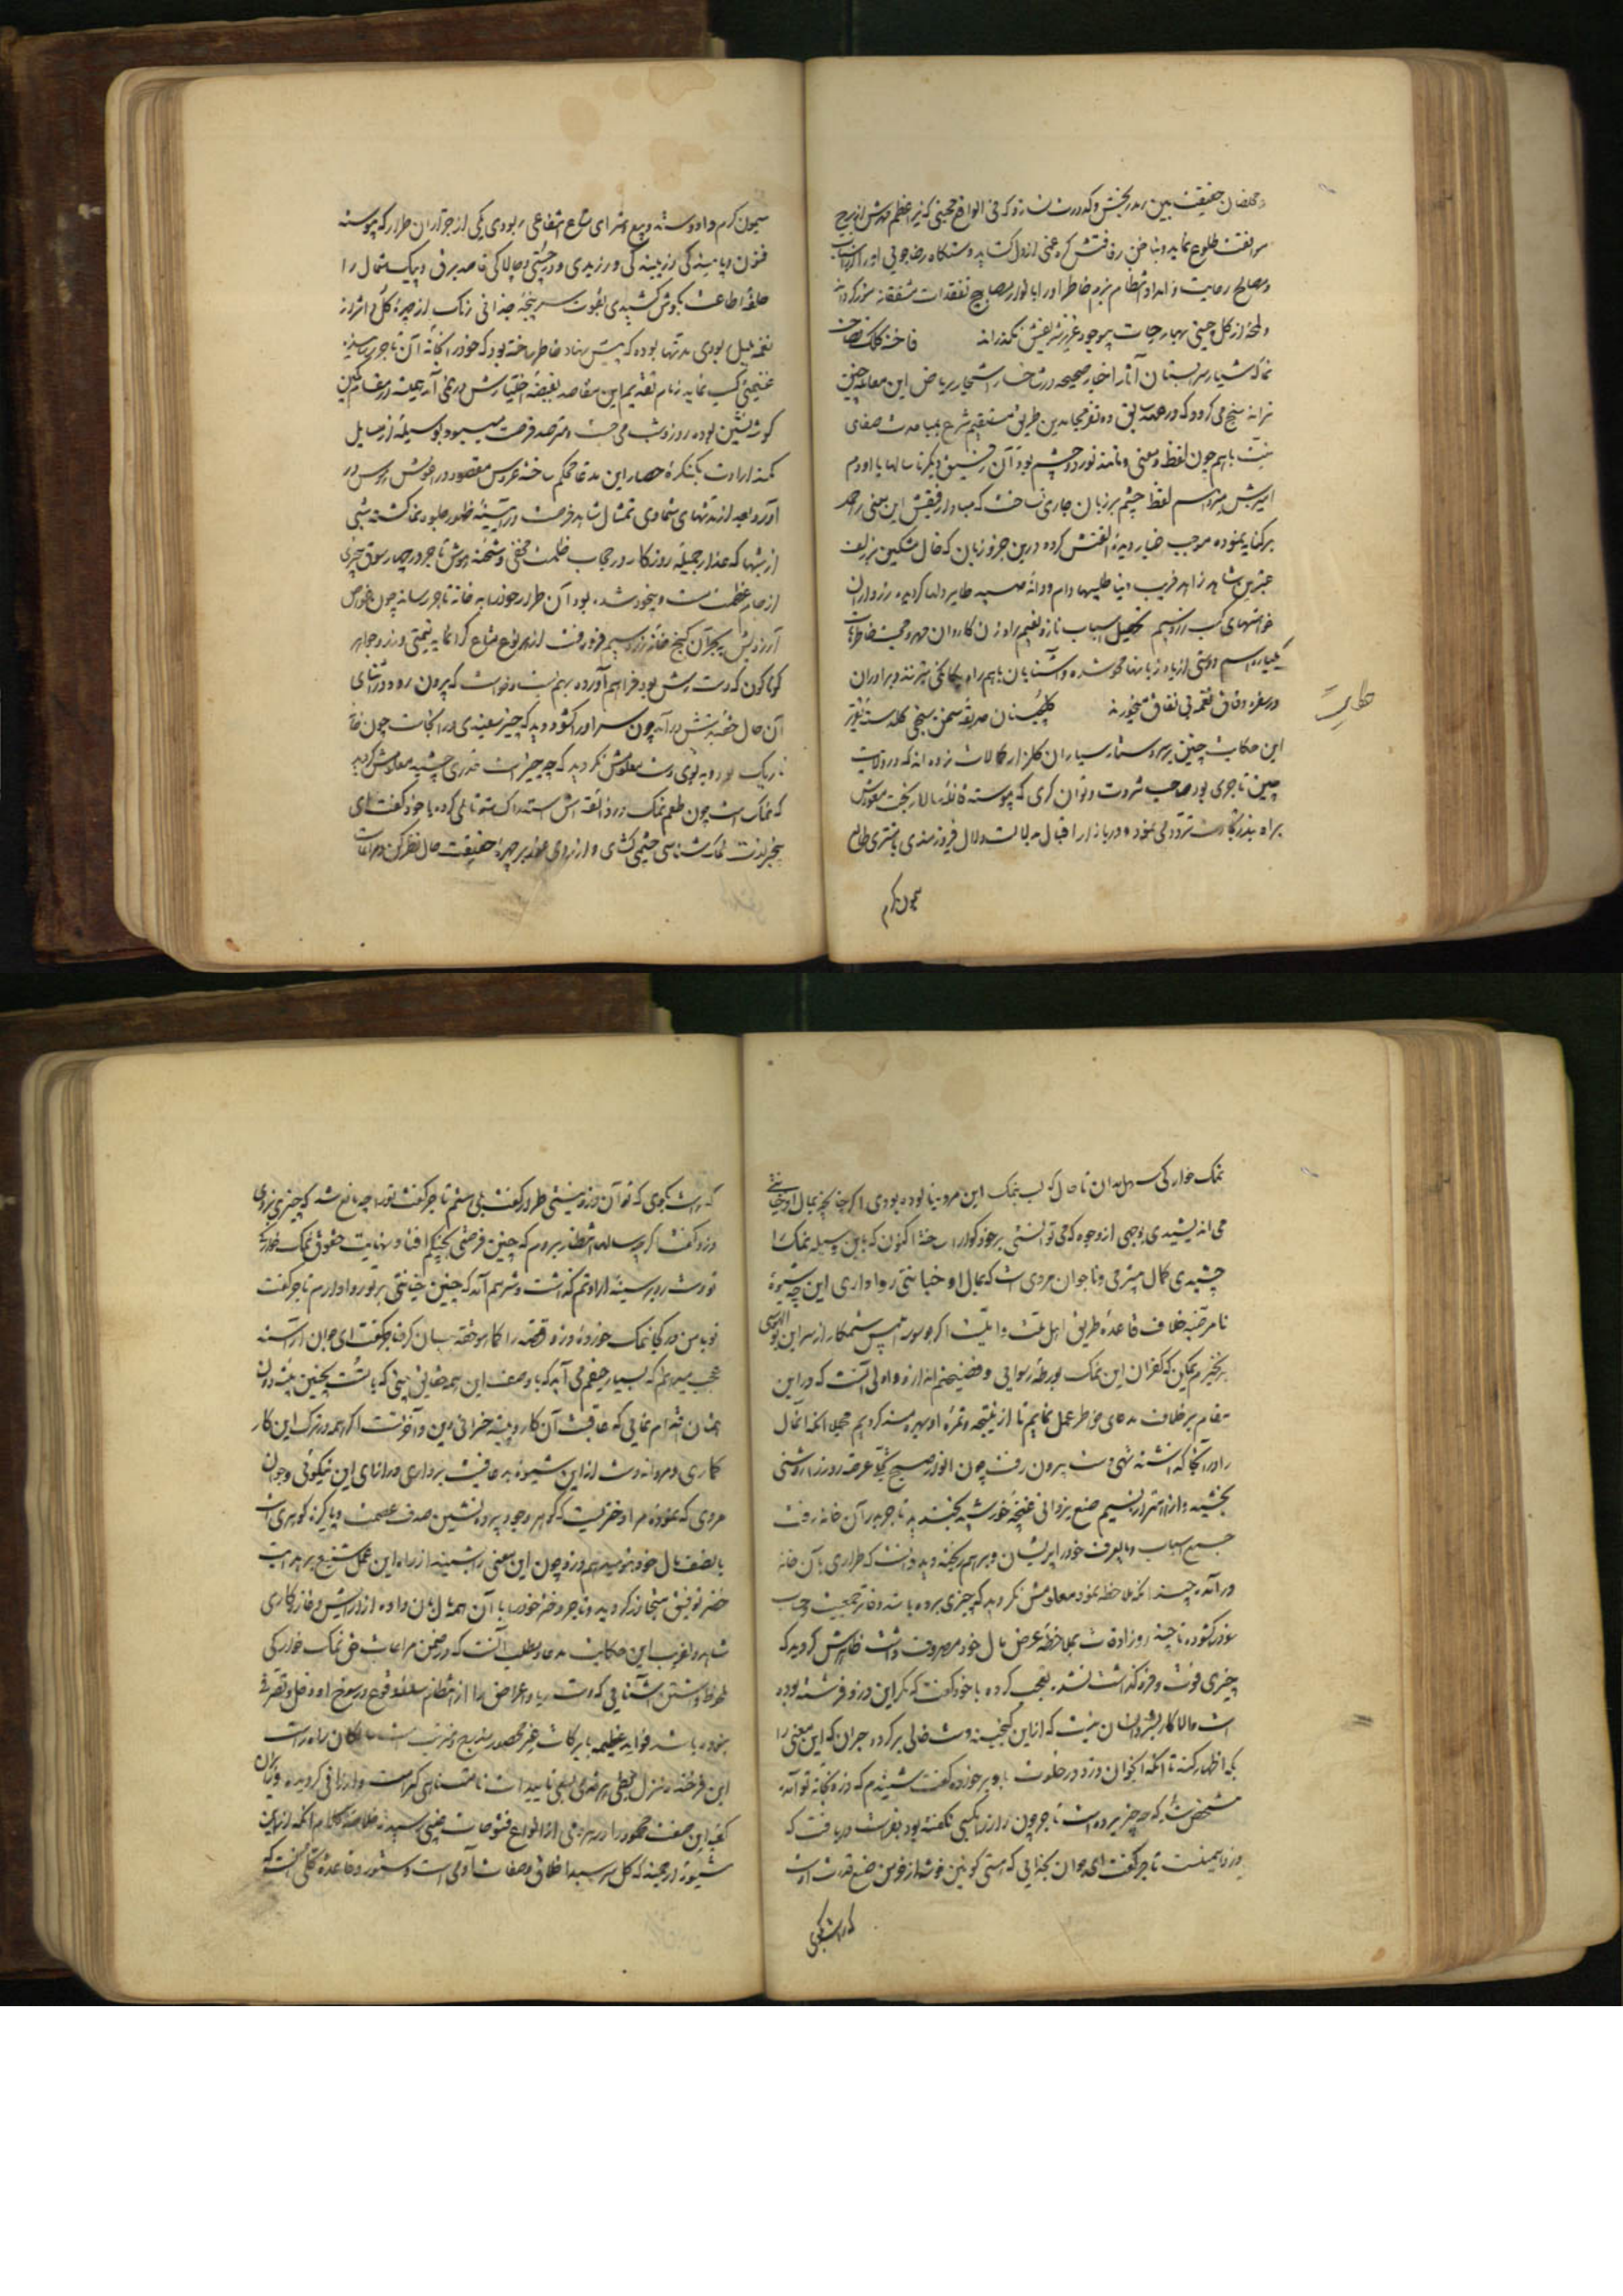 و مخلصان حقیقت بین رسد رنجش و کدورت نسازد که فی الواقع محبتی که نیر اعظم مهرش از برج
موافقت طلوع نماید و بناخن رفاقتش گره غمی از دل گشاید و دستگاه رضاجویی او را از اسباب
و مصالح رعایت و امداد و انتظام بزم خاطر او را بانوار مصابیح تفقدات مشفقانه منور گردانند
و لمحهٔ از گل چینی بهار حیات بی وجود عزیز شریفش نگذرانند فاخته کلک فصاحت
نماکه شیار سرابستان آثار اخبار صحیحه در شاخسار اشجار ریاض این معامله چنین
ترانه سنج می گردد که در عهد سابق دو نفر مجاهدین طریق مستقیم شرع بمساعدت صفای
نیت باهم چون لفظ و معنی و مانند نور دو چشم بود آن رفیق دیگر تا سالها با او دم
آمیزش میزد اسم لفظ چشم بر زبان جاری نساخت که مبادا رفیقش این معنی را حمل
بر کنایه نموده موجب غبار دیدهٔ الفتش گردد درین جزو زبان که خال مشکین بزلف
عنبرین شاهد زاهد فریب دنیا طلبیها دام و دانهٔ صید طایر دلها گردیده رزداران
خواهشهای کسب زر و سیم تحصیل اسباب ناز و نعیم راه زن کاروان مهر و محبت خاطرهاست
یکباره اسم دوستی از یاد و زبانها محو شده و آشنایان با هم راه بیگانگی میپرند و برادران
در سفره وفاق لقمه بی نفاق نمیخورند گلچینان حدیقه سخن سنجی گلدسته تقریر
این حکایت چنین بر سر دستار سیاران گلزار کمالات زده اند که در ولایت
حکایت
چین تاجری بود صاحب ثروت و توان گری که پیوسته قافله سالار بخت مغرورش
براه بندر تجارت تردد می نمود و در بازار اقبال بدلالت دلال فیروزمندی با مشتری طالع
میمون کرم
میمون کرم داد و ستد و بیع و شرای متاع انتفاعی ربودی یکی از جراران طرار که پیوسته
فنون دیاسه گی دزدینه گی ورزیدی و در چستی و چالاکی قاصد برق و پیک شمال را
حلقهٔ اطاعت بگوش کشیدی بقوت سرپنجهٔ جدایی رنگ از چهرهٔ گل و اثر از
نغمه بلبل ربودی مدتها بوده که پیش نهاد خاطر ساخته بود که خود را بخانه آن تاجر رسانیده
غنیمتی کسب نماید زمام تقدیم این مقاصد بقبضهٔ اختیارش در نمی آمد همیشه در مقام کمین
گوشه نشین بوده روز و شب می جست و مترصد فرصت میبود بوسیلهٔ از وسایل
کمند ارادت بکنگرهٔ حصار این مدعا محکم ساخته عروس مقصود در آغوش هوس در
آورد بعد از مدتهای متمادی تمثال شاهد فرصت در آیینهٔ ظهور جلوه نما گشته شبی
از شبها که عذار جمیلهٔ روزگار در حجاب ظلمت مخفی و شحنه هوش تاجر در چهارسوق بیخبری
از جام غفلت مست و بیخود شده بود آن طرار خود را به خانه تاجر رسانده چون غواص
آرزویش ببحر آن گنج خانه زر و سیم فرو رفت از هر نوع متاع گرانمایه قیمتی و زر و جواهر
گوناگون که دست رسش بود فراهم آورده بهم بست و خواست که بیرون رود در اثنای
آن حال حقه بدستش در آمد چون سر او را گشود دید که چیز سفیدی در آنجاست چون خانه
تاریک بود و بد بوی و ت معلومش نگردید که چه چیز است قدری چشید معلومش گردید
که نمک است چون طعم نمک در ذائقه اش استدراک نمود تاملی کرده با خود گفت ای
بیخبر لذت نمک شناسی چشمی گشای و از روی هوش بر چهرهٔ حقیقت حال نظر کن و مراعات
نمک خوارگی سهل مدان تا حال که لب بنمک این مرد نیالوده بودی اگر چنانچه بمال او خیانتی
می اندیشیدی بوجهی از وجوه که می توانستی بر خود گوارا ساخت اکنون که باین وسیله نمک او را
چشیدی کمال بیشرمی و ناجوان مردی است که بمال او خیانتی روا داری این چه شیوهٔ
نامرضیه خلاف قاعدهٔ طریق اهل ملت و آیین است اگر بوسوسه ابلیس ستمکار از سر این بوالهوسی
برنخیزم یمکن که کفران این نمک بورطهٔ رسوایی و فضیحتم اندازد و اولی آنست که در این
مقام بر خلاف مدعای خاطر عمل نمایم تا از نتیجه و ثمرهٔ او بهره مند گردیم مجملا آنکه آن مال
را در آنجا گذاشته تهی دست بیرون رفت چون انوار صبح گیتی عرصه روز را روشنی
بخشید و از اهتزاز نسیم صنع یزدانی غنچهٔ خورشید بخندید تاجر بدر آن خانه رفت
جمیع اسباب و مایعرف خود را پریشان و برهم ریخته دید دانست که طراری بآن خانه
درآمده چندانکه ملاحظه نمود معلومش نگردید که چیزی برده باشد دفاتر جمعیت و حساب
خود را گشوده تا چند روز اوقات بملاحظهٔ عرض مال خود مصروف داشت ظاهرش گردید که
چیزی فوت و فروگذاشت نشده تعجب کرده با خود گفت که مگر این دزد فرشته بوده
است والا کار بشر و انسان نیست که از این گنجینه دست خالی برگردد حیران که این معنی را
بکه اظهار کند تا آنکه آنجوان دزد در خلوت باو برخورده گفت شنیدم که دزد بخانهٔ تو آمده
مشخص شد که چه چیز برده است تاجر چون راز را بکسی نگفته بود بفراست دریافت که
دزد همینست تاجر گفت ای جوان بخدایی که هستی کونین خوشهٔ از خرمن صنع قدرت اوست
که راست بگوی
که راست بگوی که تو آن دزد نیستی طرار گفت بلی منم تاجر گفت ترا چه مانع شد که چیزی نبردی
دزد گفت اگر چه سالها انتظار بردم که چنین فرصتی بچنگم افتاد و نهایت حقوق نمک خوارگی
تو دست رد بر سینهٔ ارادتم گذاشت و شرمم آمد که چنین خیانتی بر تو روا دارم تاجر گفت
تو با من در کجا نمک خوردهٔ دزد قصه را کما هو حقه بیان کرد تاجر گفت ای جوان آراسته
عجب میدارم که بسیار حیفم می آید که با وصف این همه حقایق بینی که با تست بچنین پیشه دون
همتان اقدام نمایی که عاقبت آن کار و پیشه خسران دین و آخرتست اگر همه در ترک این کار
کاری و مردانه دست از این شیوهٔ بد عاقبت برداری در ازای این نیکویی و جوان
مردی که نمودهٔ مرا دختریست که گوهر وجود پرده نشین صدف عصمت و پاکیزه گوهری است
با نصف مال خود بتو میدهم دزد چون این معنی را شنید از راه این عمل شنیع بهدایت
خضر توفیق متجاوز گردیده و تاجر دختر خود را با آن همه مال بان داده از آرایش و غازه کاری
شاهد دلفریب این حکایت مدعا و مطلب آنست که در ضمن مراعات حق نمک خوارگی
ملحوظ داشتن آشنایی که دست ریا و اغراض ما را از انتظام سلسله وقوع و رسوخ او دخل و تصرفی
نبوده باشد فواید عظیمه با برکات غیر محصور مندرج و مترتب است
این فرخنده منزل بخطی بهره مندی بعلی تاییدات نامتناهی کرامت و ارزانی گردیده و یاران
کعبه این صفت محمود را در هر دمی از انواع فتوحات غیبی رسیده خلاصه کلام آنکه از این
شیوهٔ ارجمند که گل سرسبد اخلاق و صفات آدمی است و دستور و قاعدهٔ کلی آنست که